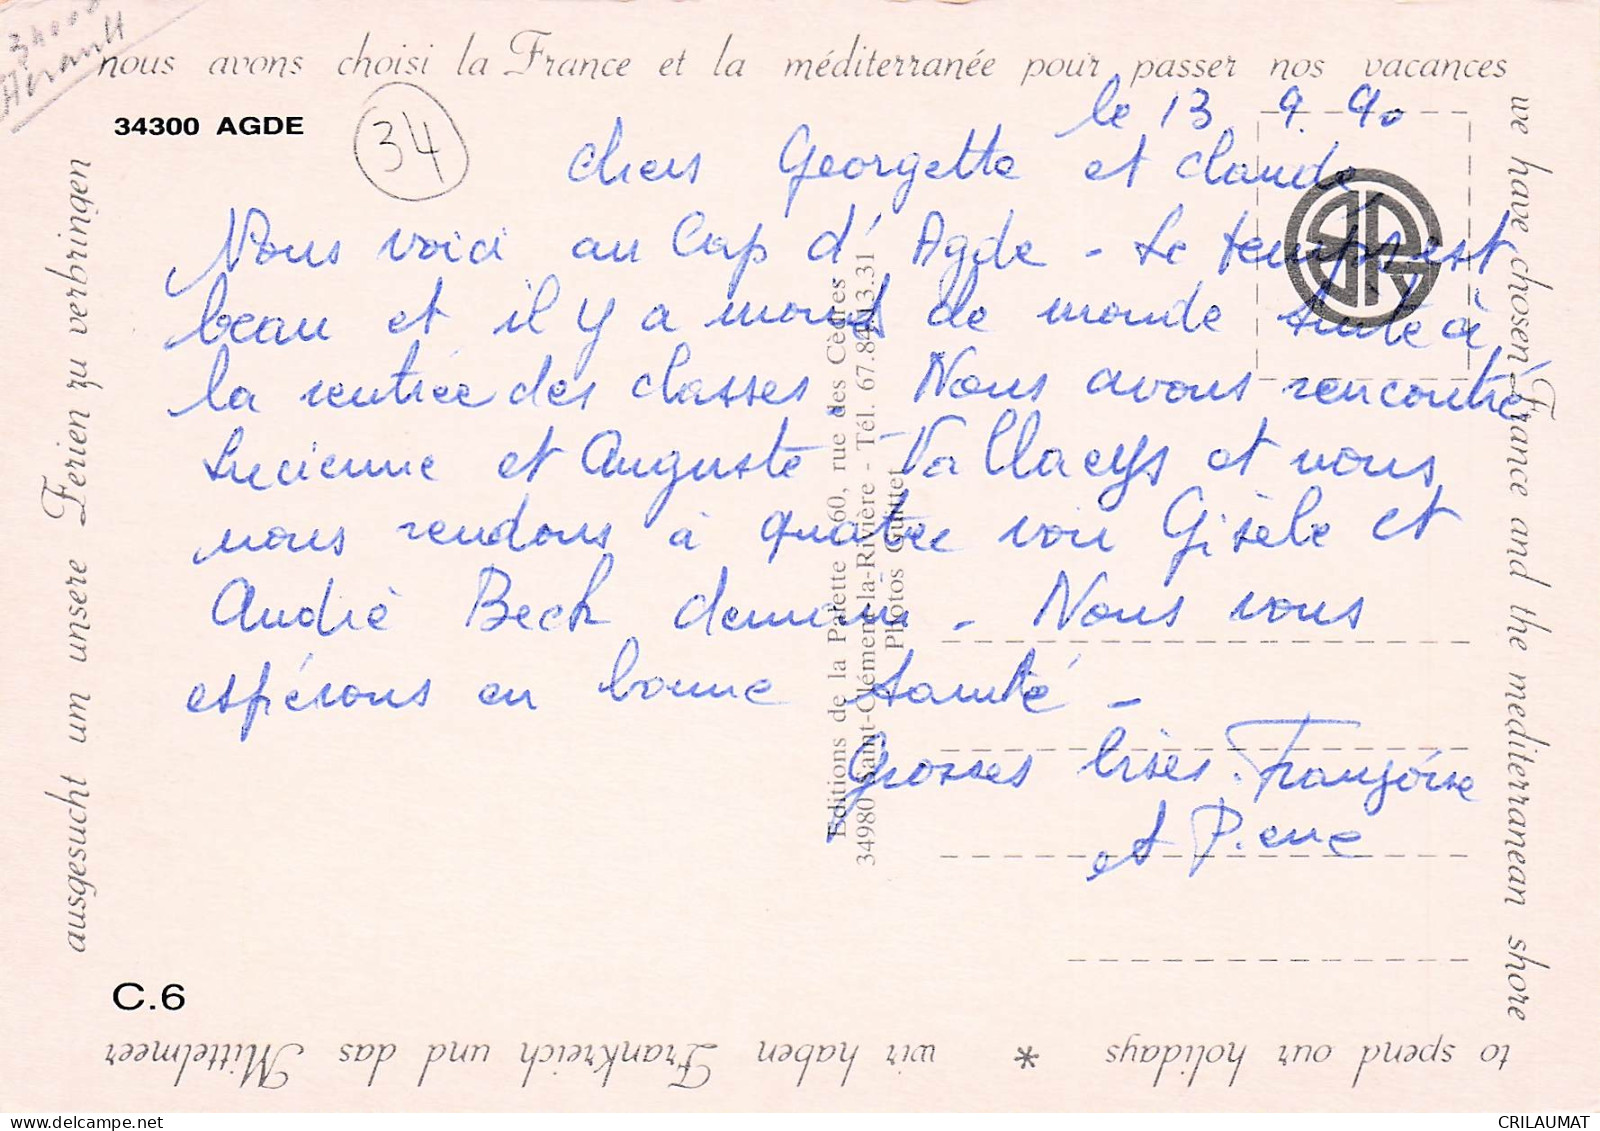 34000
Hérault
nous avons choisi la France et la méditerranée pour passer nos vacances
34300 AGDE
34
le 13 9.90
Chers Georgette et Claude
Nous voici au Cap d'Agde - Le temps est
beau et il y a moins de monde suite à
la rentrée des classes. Nous avons rencontré
Lucienne et Auguste Vallaeys et nous
nous rendons à quatre voir Gisèle et
André Beck demain - Nous vous
espérons en bonne santé -
Grosses bises. Françoise
et Pierre
Editions de la Palette 60, rue des Cèdres
34980 Saint-Clément-la-Rivière - Tél. 67.84.13.31
Photos Guittet
C.6
we have chosen France and the mediterranean shore
to spend our holidays * wir haben Frankreich und das Mittelmeer
ausgesucht um unsere Ferien zu verbringen
CRILAUMAT